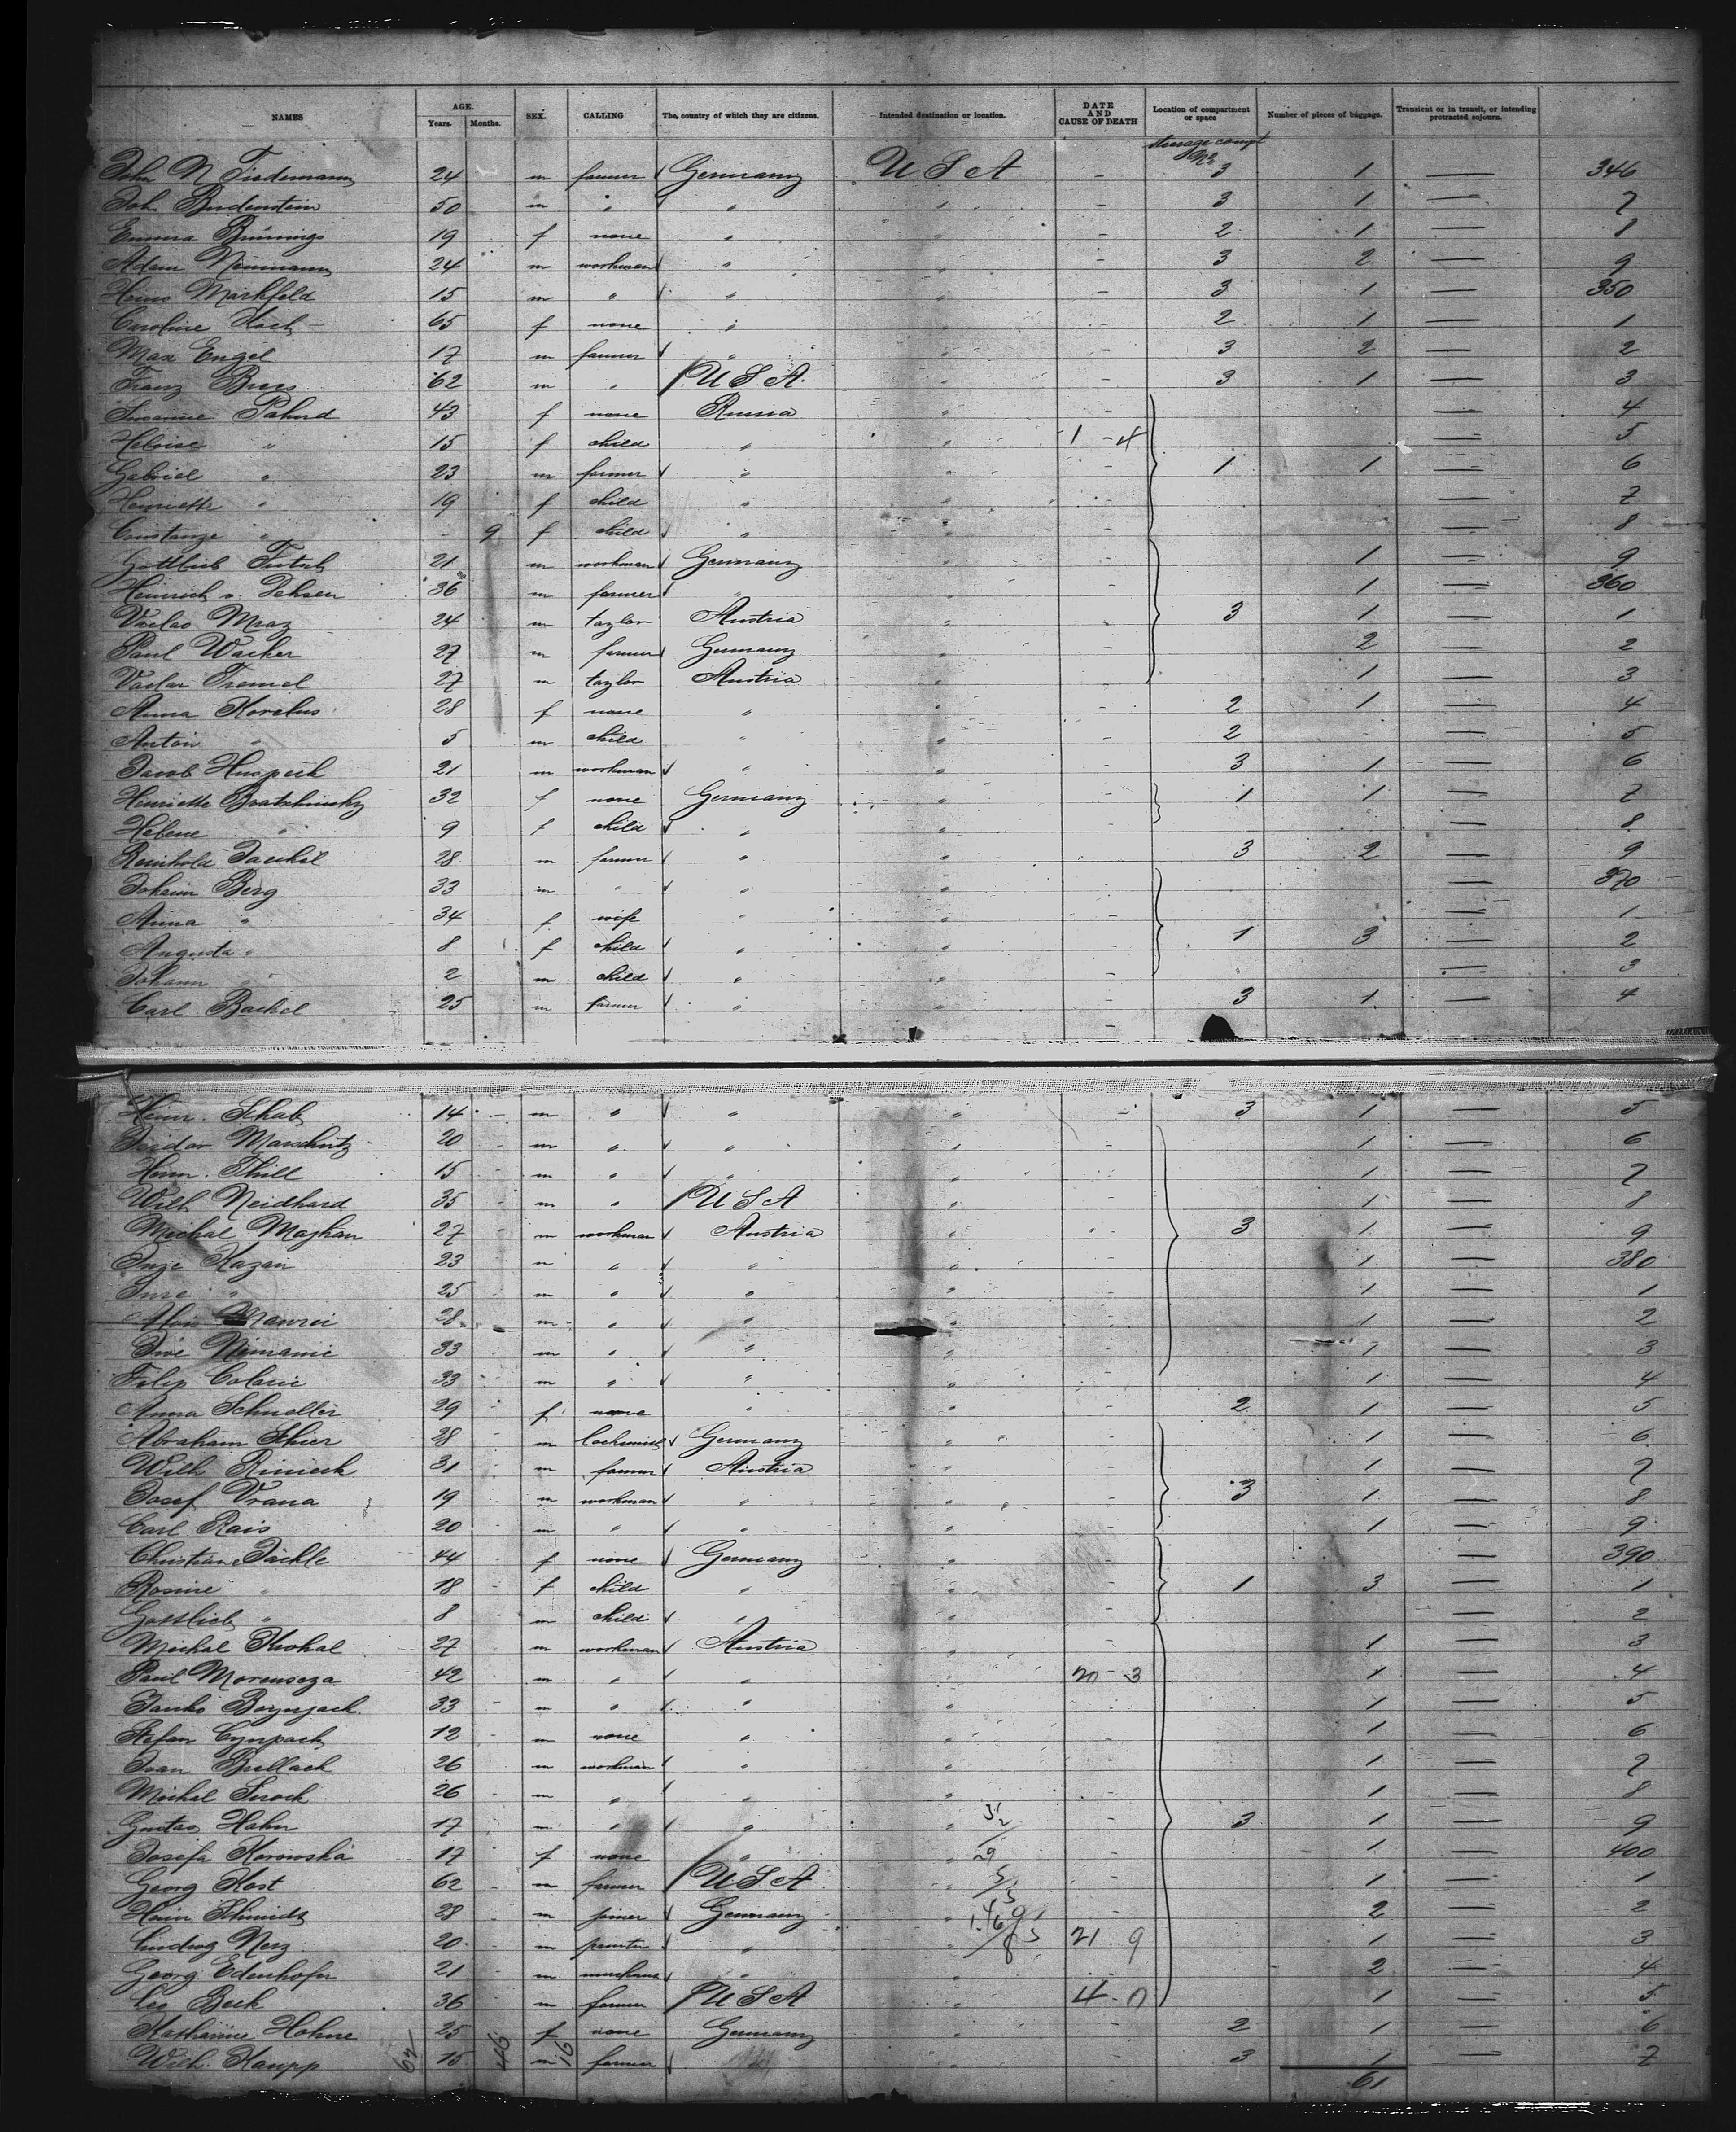 NAMES AGE. Years. Months. SEX. CALLING The country of which they are citizens. Intended destination or location. DATE AND CAUSE OF DEATH Location of compartment or space Number of pieces of baggage. Transient or in transit, or intending protracted sojourn.
Steerage compt
No
John N Tiedemann 24 m farmer Germany U S A - 3 1 — 346
Joh. Budenstein 50 m " " " - 3 1 — 7
Emma Brünings 19 f none " " - 2 1 — 8
Adam Neumann 24 m workman " " - 3 2 — 9
Heino Markfeld 15 m " " " - 3 1 — 350
Caroline Koch 65 f none " " - 2 1 — 1
Max Engel 17 m farmer " " - 3 2 — 2
Franz Brers 62 m " U S A. " - 3 1 — 3
Susanne Pahud 43 f none Russia " — 4
Heloise " 15 f child " " 1 - 4 — 5
Gabriel " 23 m farmer " " - 1 1 — 6
Henriette " 19 f child " " - — 7
Constanze " - 9 f child " " - — 8
Gottlieb 21 m workman Germany " - 1 — 9
Heinrich v. Dehsen 36 m farmer " " - 1 — 360
Vaclav Mraz 24 m taylor Austria " - 3 1 — 1
Paul Wacker 27 m farmer Germany " - 2 — 2
Vaclav Tremel 27 m taylor Austria " - 1 — 3
Anna Korelus 28 f none " " - 2 1 — 4
Anton " 5 m child " " - 2 - — 5
Jacob Huspeck 21 m workman " " - 3 1 — 6
Henriette Bratschinsky 32 f none Germany " - 1 1 — 7
Helene " 9 f child " " - — 8
Reinhold Jaeckel 28 m farmer " " - 3 2 — 9
Johann Berg 33 m " " " - — 370
Anna " 34 f wife " " - — 1
Augusta " 8 f child " " - 1 3 — 2
Johann " 2 m child " " - — 3
Carl Backel 25 m farmer " " - 3 1 — 4
Heinr. Schab 14 - m " " " - 3 1 — 5
Isidor Marschütz 20 - m " " " - 1 — 6
Heinr. Thill 15 - m " " " - 1 — 7
Wilh Neidhard 35 - m " U S A " - 1 — 8
Michal Majhan 27 - m workman Austria " - 3 1 — 9
Kazan 23 - m " " " - 1 — 380
" 25 - m " " " - 1 — 1
Alois 28 - m " " " - 1 — 2
Nemanic 33 - m " " " - 1 — 3
Filip Colaric 33 - m " " " - 1 — 4
Anna Schneller 29 - f none " " - 2 1 — 5
Abraham Schier 28 - m Germany " - 1 — 6
Wilh 31 - m farmer Austria " - 1 — 7
Josef Vrana 19 - m workman " " - 3 1 — 8
Carl Rais 20 - m " " " - 1 — 9
Christiane Jäckle 44 - f none Germany " - — 390
Rosine " 18 - f child " " - 1 3 — 1
Gottlieb " 8 - m child " " - — 2
Michal Krohal 27 - m workman Austria " - 1 — 3
Paul Morouseza 42 - m " " " 20 - 3 1 — 4
Janko 33 - m " " " - 1 — 5
Stefan 12 - m none " " - 1 — 6
Ivan Bullach 26 - m workman " " - 1 — 7
Michal 26 - m " " " - 1 — 8
Gustav Hahn 17 - m " " " - 3 1 — 9
Josefa Korowska 17 - f none " " - 1 — 400
Georg Kost 62 - m farmer U S A " - 1 — 1
Heinr Schmidt 28 - m joiner Germany " - 2 — 2
Ludwig Nerz 20 - m " " 21 9 1 — 3
Georg Edenhofer 21 - m " " - 2 — 4
Leo Beck 36 - m farmer U S A " 4 - 0 1 — 5
Katharine Hohne 25 f none Germany " - 2 1 — 6
Wilh. Kaupp 15 m farmer " - 3 1 — 7
62 46 16 61